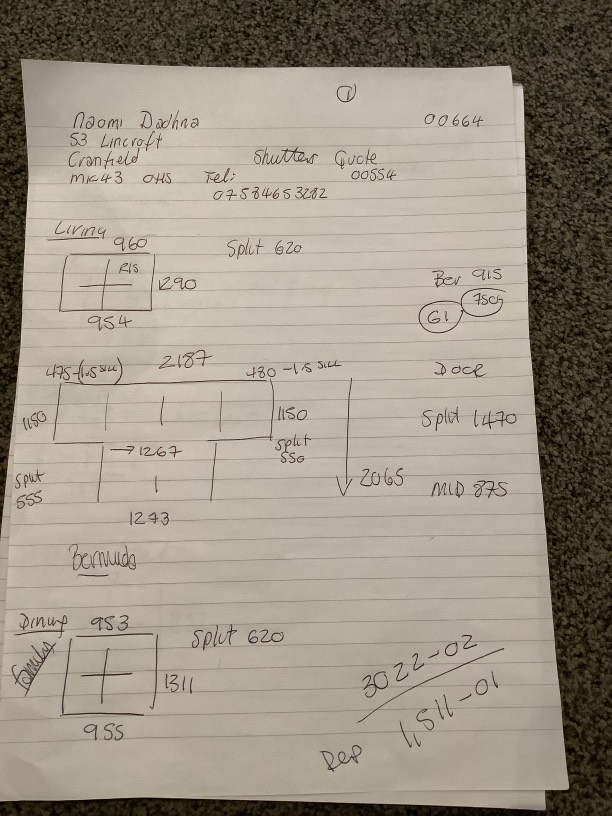 ①
Naomi Dadhna 00664
53 Lincroft
Cranfield Shutter Quote
MK43 0HS Tel: 00554
07584653282
Living
960 Split 620
R/S
1290
954
Ber 915
75cg
G1
475-(1.5 SILL) 2187 480-1.5 SILL
DOOR
1150 1150
Split 1470
→1267
Split 550
Split 555
2065
MID 875
1243
Bermuda
Dining 953 Split 620
Family
1311
955
3022-02
DEP 1,511-01